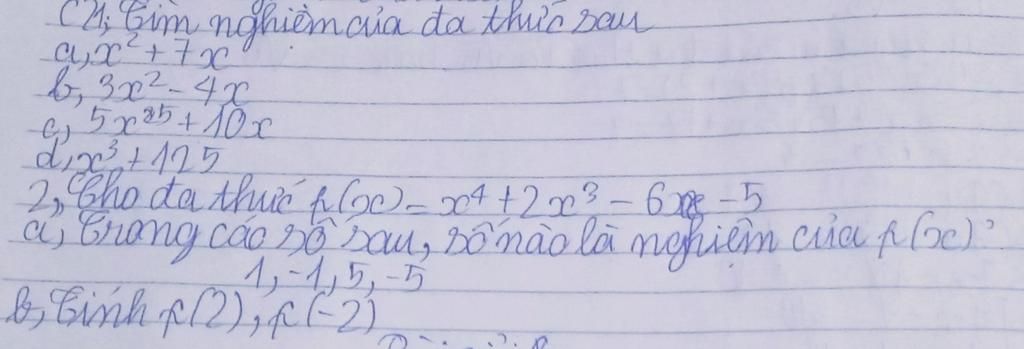 C1, Tìm nghiệm của đa thức sau
a, x² + 7x
b, 3x² - 4x
c, 5x²⁵ + 10x
d, x³ + 125
2, Cho đa thức f(x) = x⁴ + 2x³ - 6x - 5
a, Trong các số sau, số nào là nghiệm của f(x)?
1, -1, 5, -5
b, Tính f(2), f(-2)